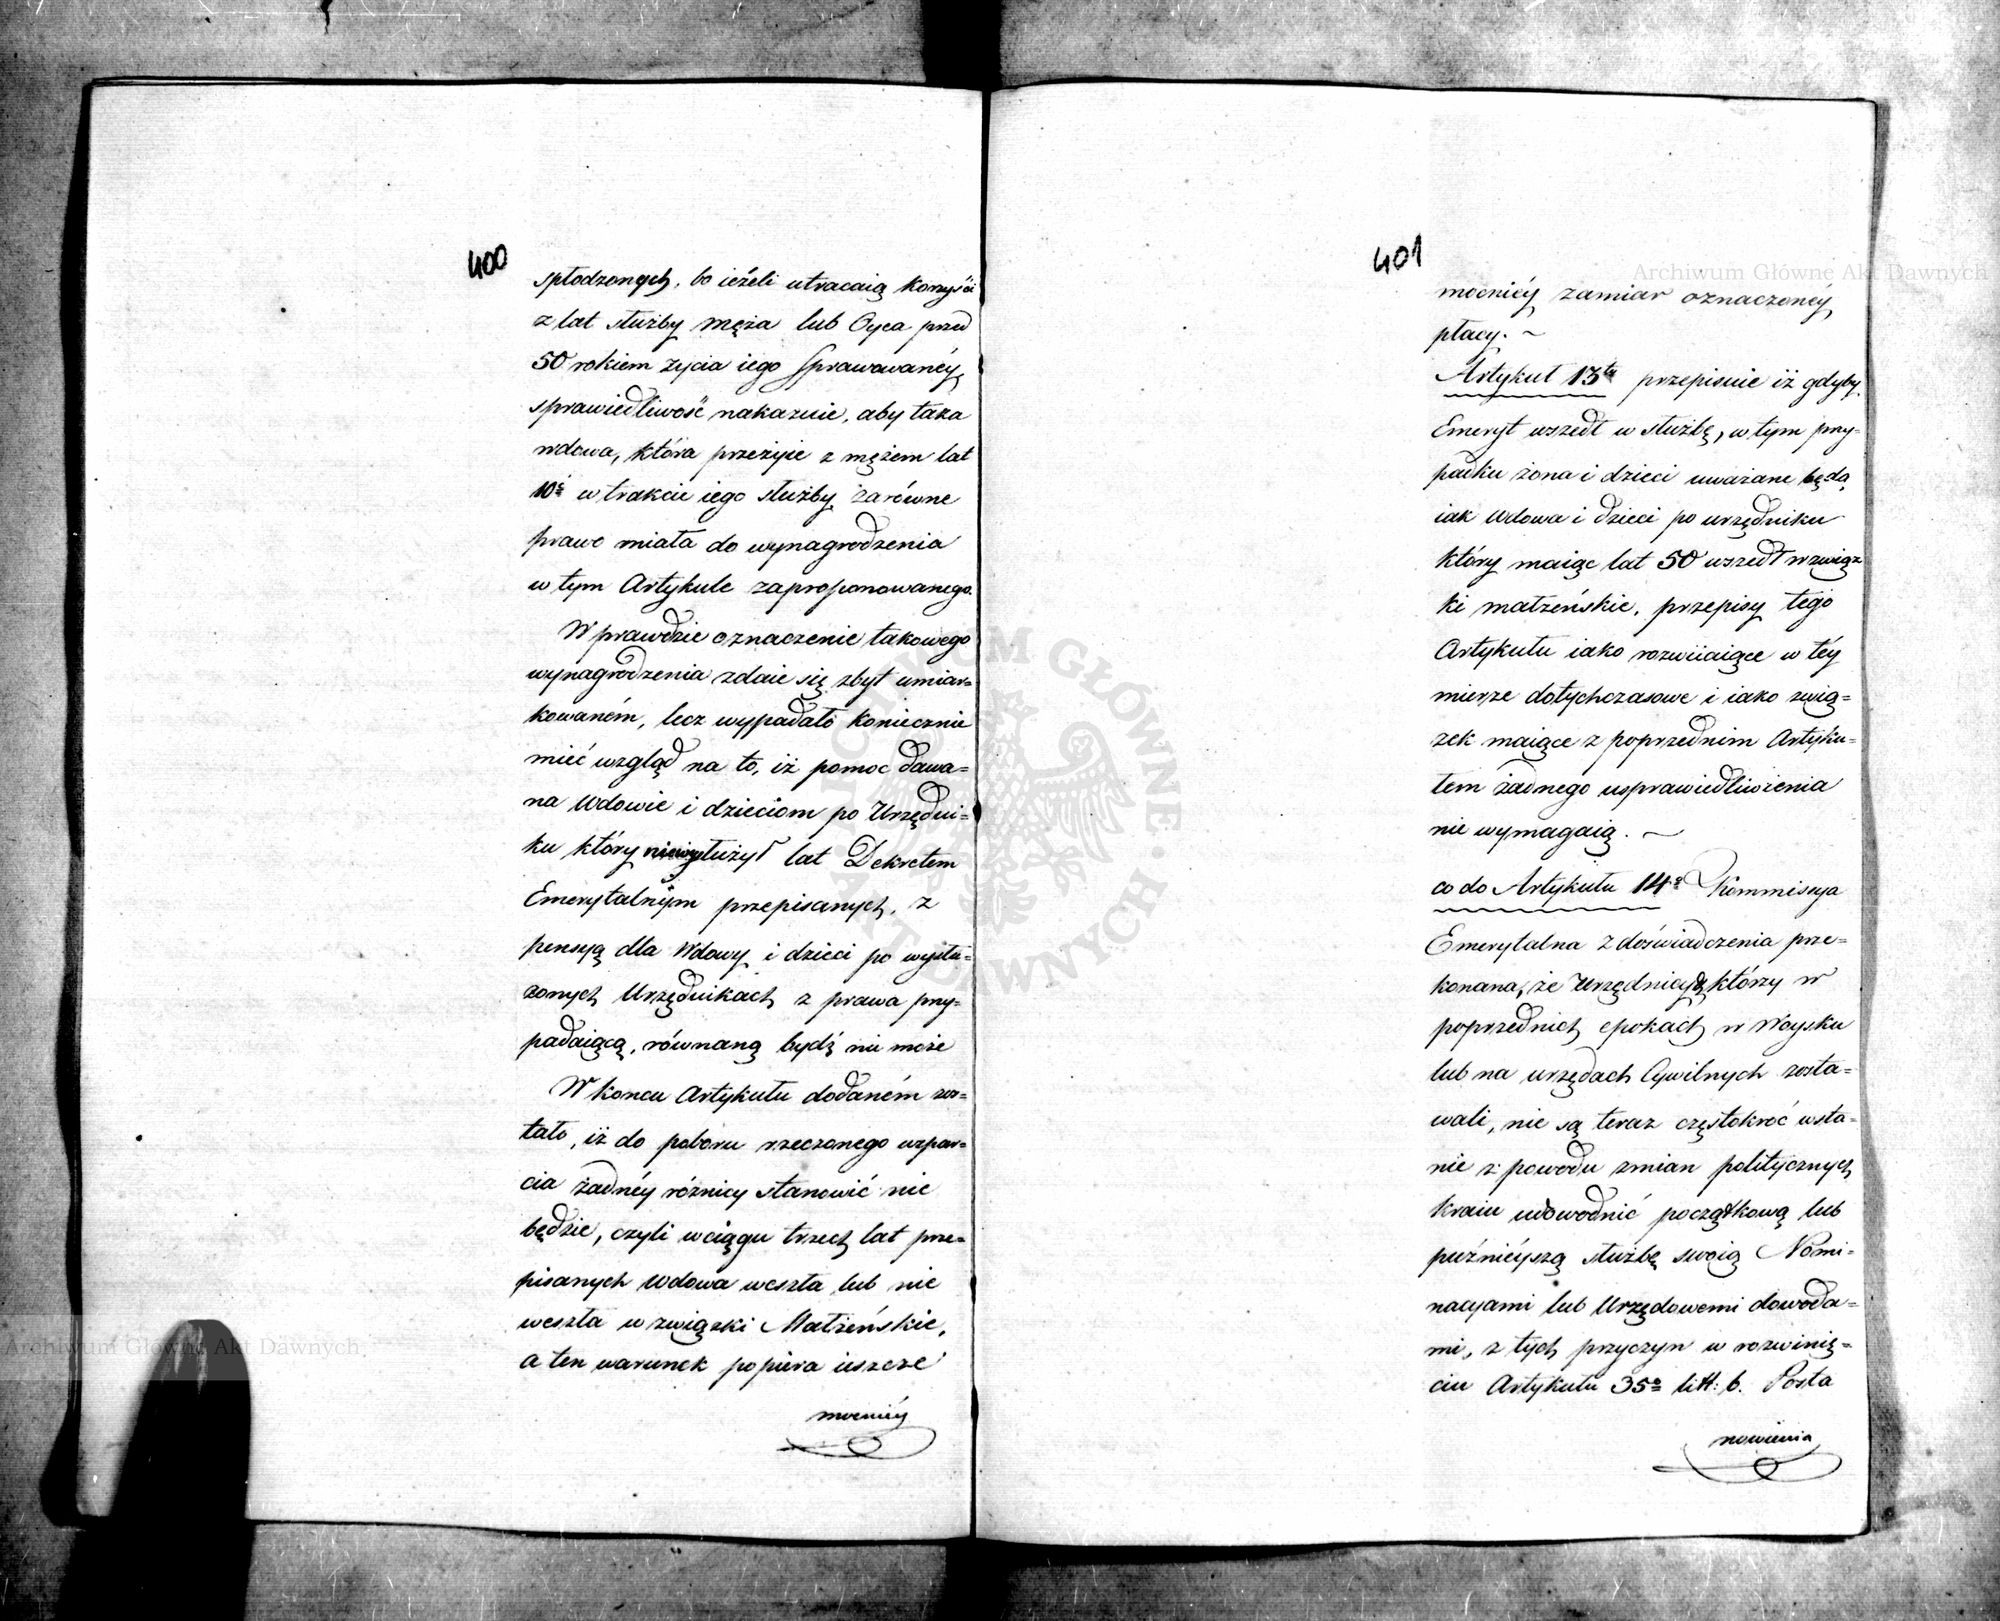 400
spłodzonych, bo ieżeli utracaią korzyści
z lat służby męża lub Oyca przed
50 rokiem życia iego sprawowanéy,
sprawiedliwość nakazuie, aby taka
wdowa, która przeżyie z mężem lat
10ć w trakcie iego służby zarówne
prawo miała do wynagrodzenia
w tym Artykule zaproponowanego.
W prawdzie oznaczenie takowego
wynagrodzenia zdaie się zbyt umiar=
kowaném, lecz wypadało koniecznie
mieć wzgląd na to, iż pomoc dawa=
na Wdowie i dzieciom po Urzędni=
ku który niewysłużył lat Dekretem
Emerytalnym przepisanych, z
pensyą dla Wdowy i dzieci po wysłu=
żonych Urzędnikach z prawa przy=
padaiącą, równaną bydź nie może
W końcu Artykułu dodaném zos=
tało, iż do poboru rzeczonego wspar=
cia żadnéy różnicy stanowić nie
będzie, czyli w ciągu trzech lat prze=
pisanych Wdowa weszła lub nie
weszła w związki Małżeńskie,
a ten warunek popiera ieszcze
mocniéy
401
Archiwum Główne Akt Dawnych
mocniéy zamiar oznaczonéy
płacy. ~
Artykuł 13ty przepisuie iż gdyby
Emeryt wszedł w służbę, w tym przy=
padku żona i dzieci uważane będą
iak Wdowa i dzieci po urzędniku
który maiąc lat 50 wszedł w związ
ki małżeńskie, przepisy tego
Artykułu iako rozwiiaiące w téy
mierze dotychczasowe i iako zwią=
zek maiące z poprzednim Artyku=
łem żadnego usprawiedliwienia
nie wymagaią. ~
co do Artykułu 14o Kommissya
Emerytalna z doświadczenia prze=
konana, że Urzędnicy którzy w
poprzednich epokach w Woysku
lub na urzędach Cywilnych zosta=
wali, nie są teraz częstokroć wsta=
nie z powodu zmian politycznych
kraiu udowodnić początkową lub
puźniéyszą służbę swoią Nomi=
nacyami lub Urzędowemi dowoda=
mi, z tych przyczyn w rozwinię=
ciu Artykułu 35o litt: b. Posta
nowienia
Archiwum Główne Akt Dawnych
ARCHIWUM GŁÓWNE AKT DAWNYCH